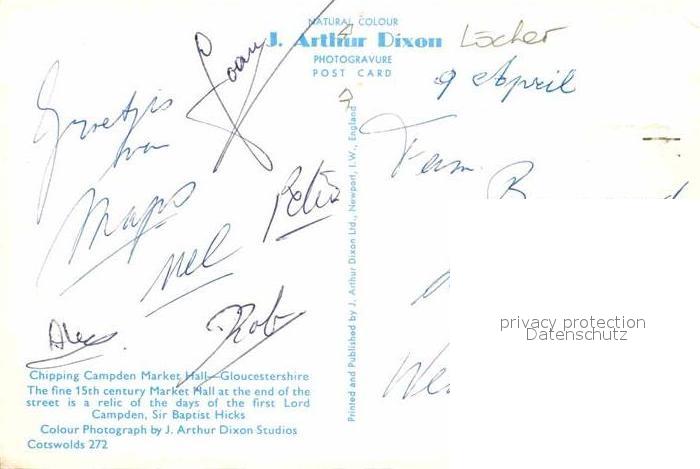 NATURAL COLOUR
J. Arthur Dixon
PHOTOGRAVURE
POST CARD
Löcher
9 April
Groetjes
van
Joan
Maps
Nel
Petra
Alex.
Rob
Fam.
Printed and Published by J. Arthur Dixon Ltd., Newport, I.W., England
privacy protection
Datenschutz
Chipping Campden Market Hall—Gloucestershire
The fine 15th century Market Hall at the end of the
street is a relic of the days of the first Lord
Campden, Sir Baptist Hicks
Colour Photograph by J. Arthur Dixon Studios
Cotswolds 272